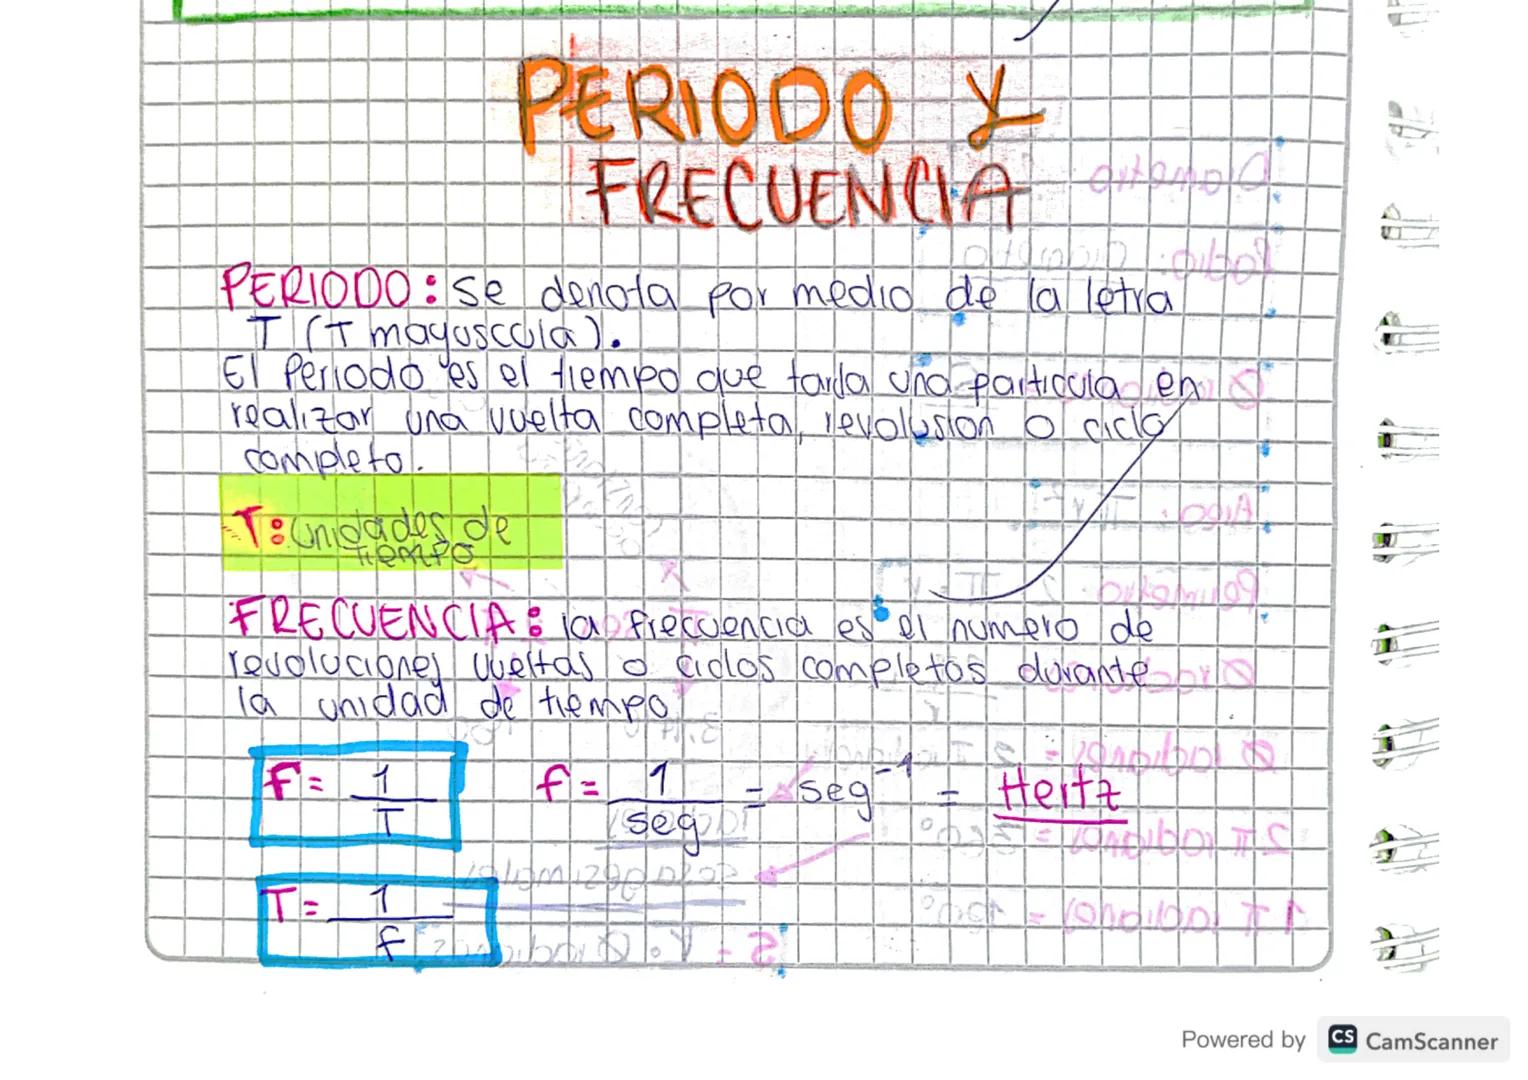 PERIODO Y
FRECUENCIA
PERIODO: se denota por medio de la letra
T (T mayuscula).
El Periodo es el tiempo que tarda una particula en
realizar una vuelta completa, revolusion o ciclo
completo.
T: unidades de
tiempo
FRECUENCIA: la frecuencia es el numero de
revoluciones vueltas o ciclos completos durante
la unidad de tiempo
f = 1/T f = 1/seg = seg⁻¹ = Hertz
T = 1/f
Powered by CS CamScanner